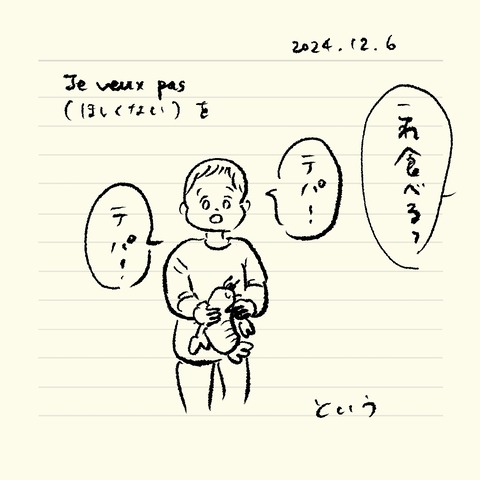 2024.12.6
Je veux pas
(ほしくない)を
これ食べる?
テパ!
テパ!
という